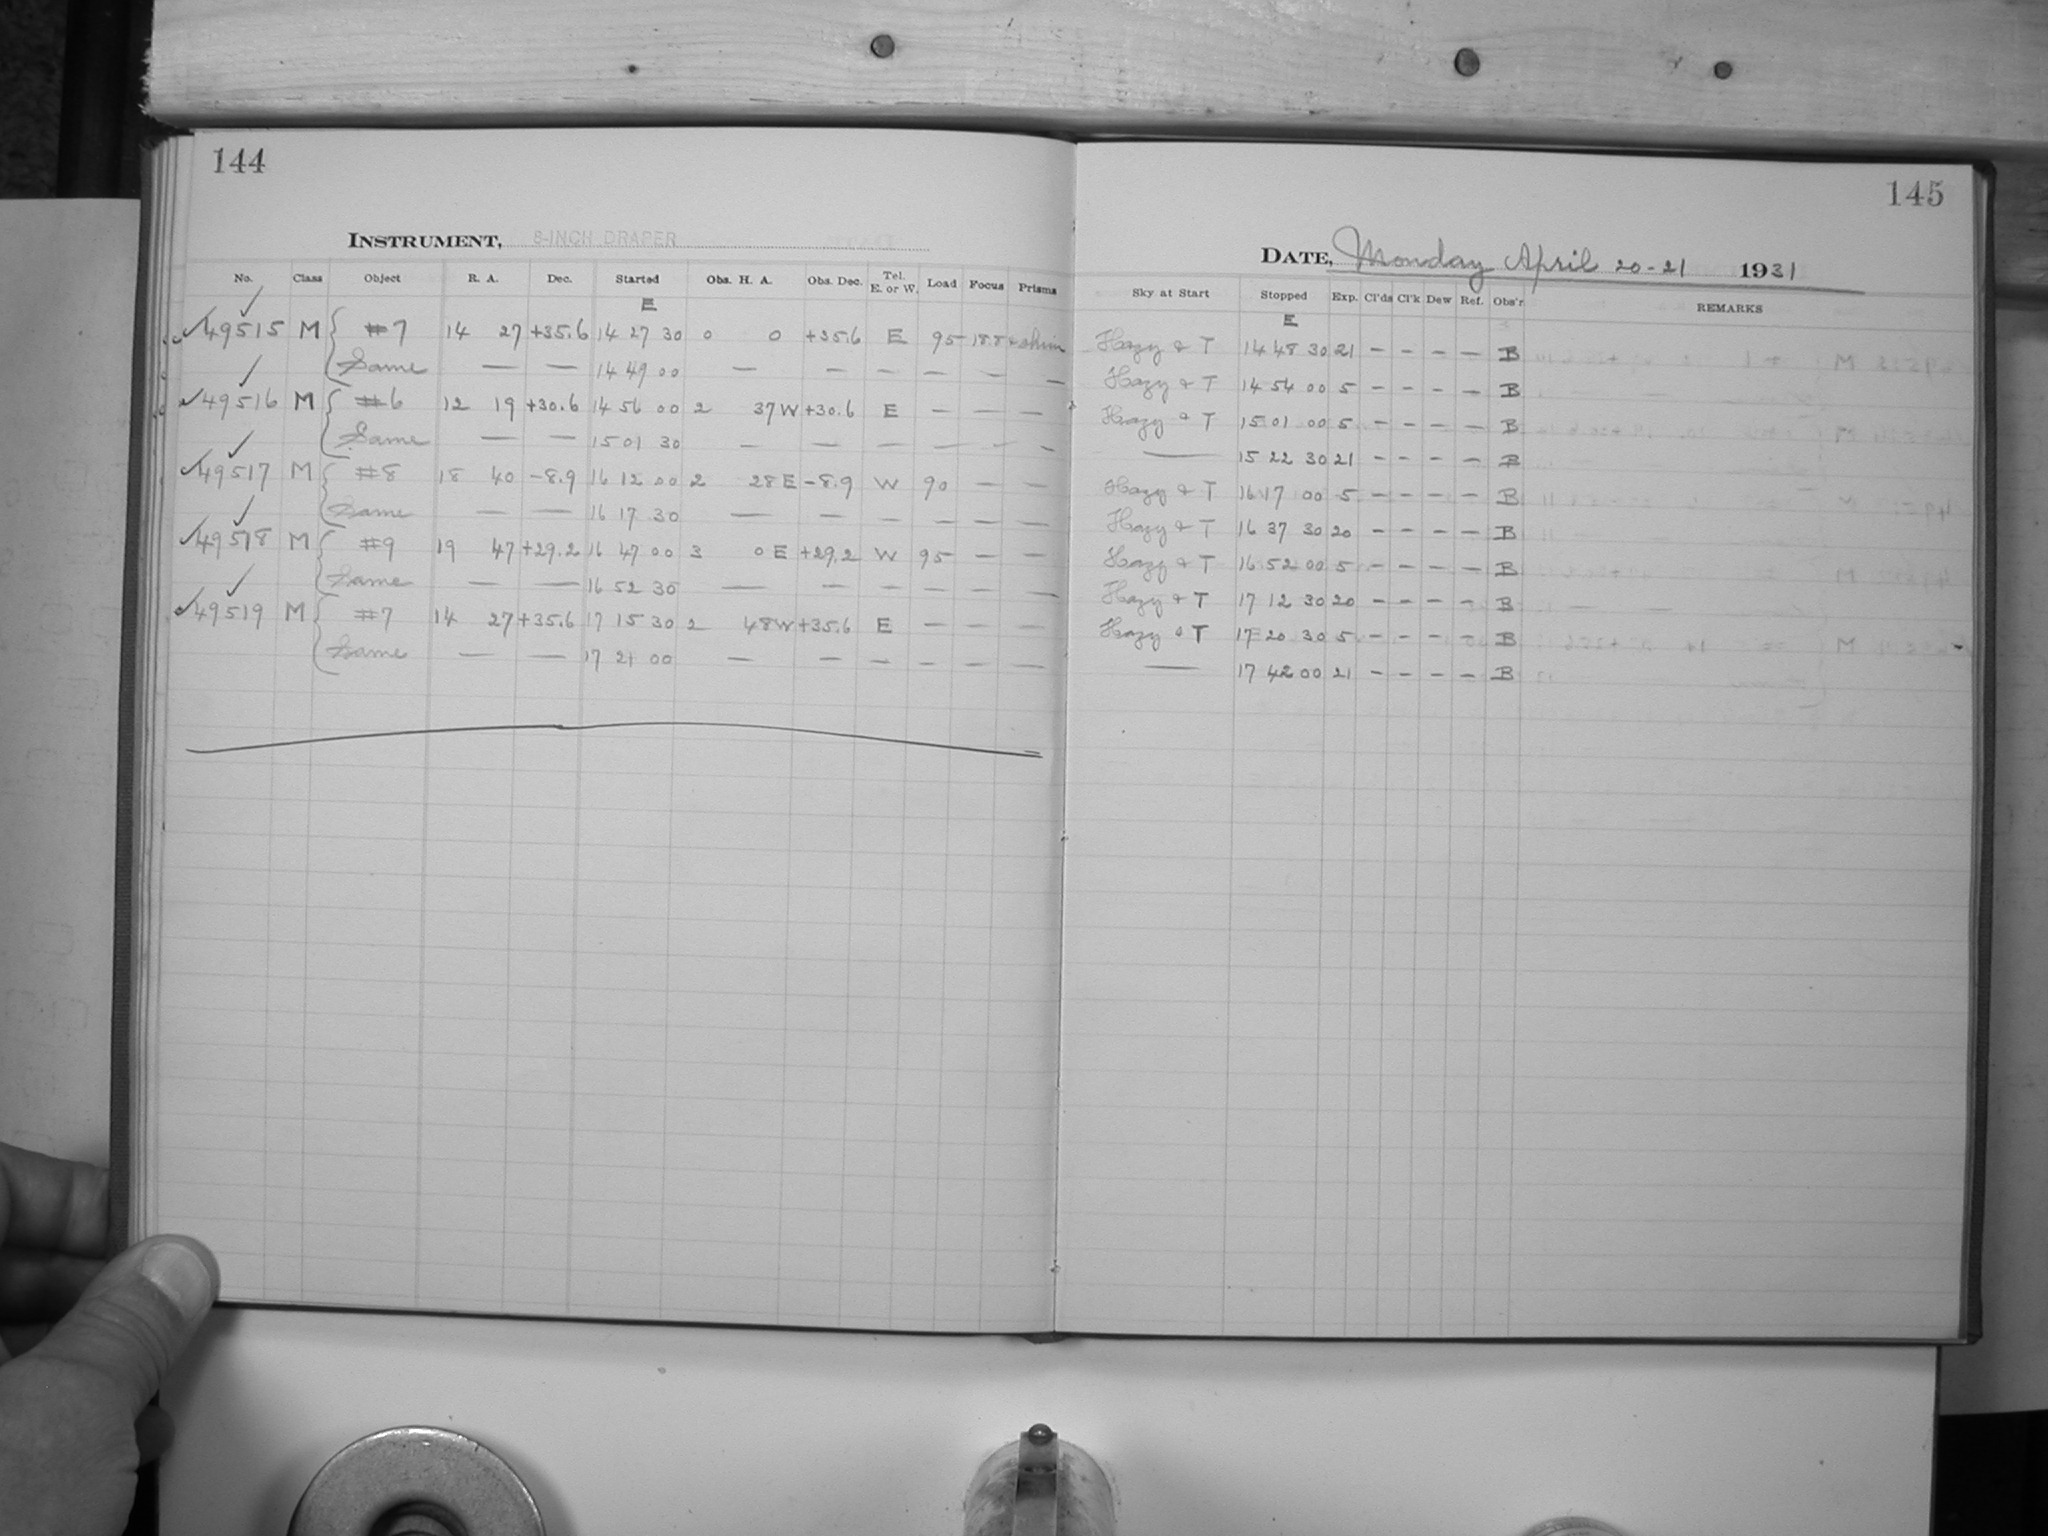 144
INSTRUMENT, 8-INCH DRAPER
No. Class Object R. A. Dec. Started Obs. H. A. Obs. Dec. Tel. E. or W. Load Focus Prisms
E
49515 M #7 14 27 +35.6 14 27 30 0 0 +35.6 E 95 18.8
Same — — 14 49 00 — — — — — —
49516 M #6 12 19 +30.6 14 56 00 2 37 W +30.6 E — — —
Same — — 15 01 30 — — — — — —
49517 M #8 18 40 -8.9 16 12 00 2 28 E -8.9 W 90 — —
Same — — 16 17 30 — — — — — —
49518 M #9 19 47 +29.2 16 47 00 3 0 E +29.2 W 95 — —
Same — — 16 52 30 — — — — — —
49519 M #7 14 27 +35.6 17 15 30 2 48 W +35.6 E — — —
Same — — 17 21 00 — — — — — —
145
DATE, Monday April 20-21 1931
Sky at Start Stopped Exp. Cl'ds Cl'k Dew Ref. Obs'r REMARKS
E
Hazy & T 14 48 30 21 — — — — B
Hazy & T 14 54 00 5 — — — — B
Hazy & T 15 01 00 5 — — — — B
— 15 22 30 21 — — — — B
Hazy & T 16 17 00 5 — — — — B
Hazy & T 16 37 30 20 — — — — B
Hazy & T 16 52 00 5 — — — — B
Hazy & T 17 12 30 20 — — — — B
Hazy & T 17 20 30 5 — — — — B
— 17 42 00 21 — — — — B